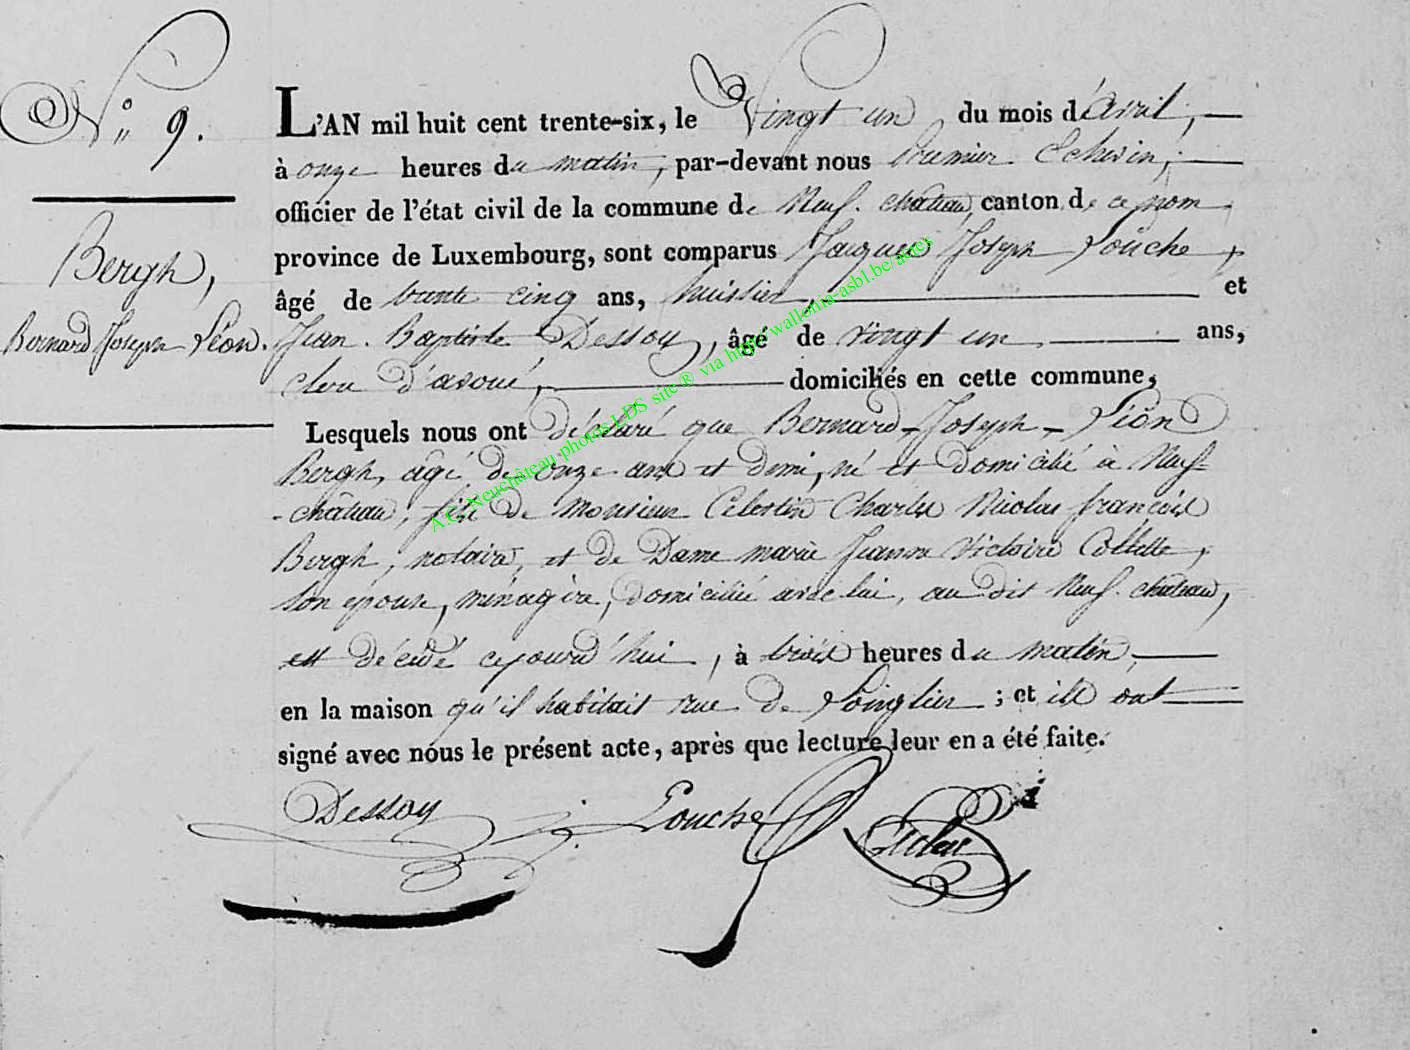 N.° 9.
Bergh,
Bernard Joseph Léon.
L'AN mil huit cent trente-six, le Vingt un du mois d'avril,
à onze heures du matin, par-devant nous premier Echevin,
officier de l'état civil de la commune de Neuf-château, canton de ce nom
province de Luxembourg, sont comparus Jacques Joseph Louche,
âgé de trente cinq ans, huissier, et
Jean Baptiste Dessoy, âgé de vingt un ans,
clerc d'avoué, domiciliés en cette commune,
Lesquels nous ont déclaré que Bernard-Joseph-Léon
Bergh, âgé de onze ans et demi, né et domicilié à Neuf-
-château, fils de Monsieur Celestin Charles Nicolas françois
Bergh, notaire, et de Dame marie Jeanne Victoire Collette,
son epouse, ménagère, domiciliée avec lui, au dit Neuf-château,
est décédé cejourd'hui, à trois heures du matin,
en la maison qu'il habitait rue de Longlier ; et ils ont
signé avec nous le présent acte, après que lecture leur en a été faite.
Dessoy Louche
A.C. Neuchâteau photos LDS site ® via http://wallonia-asbl.be/actes